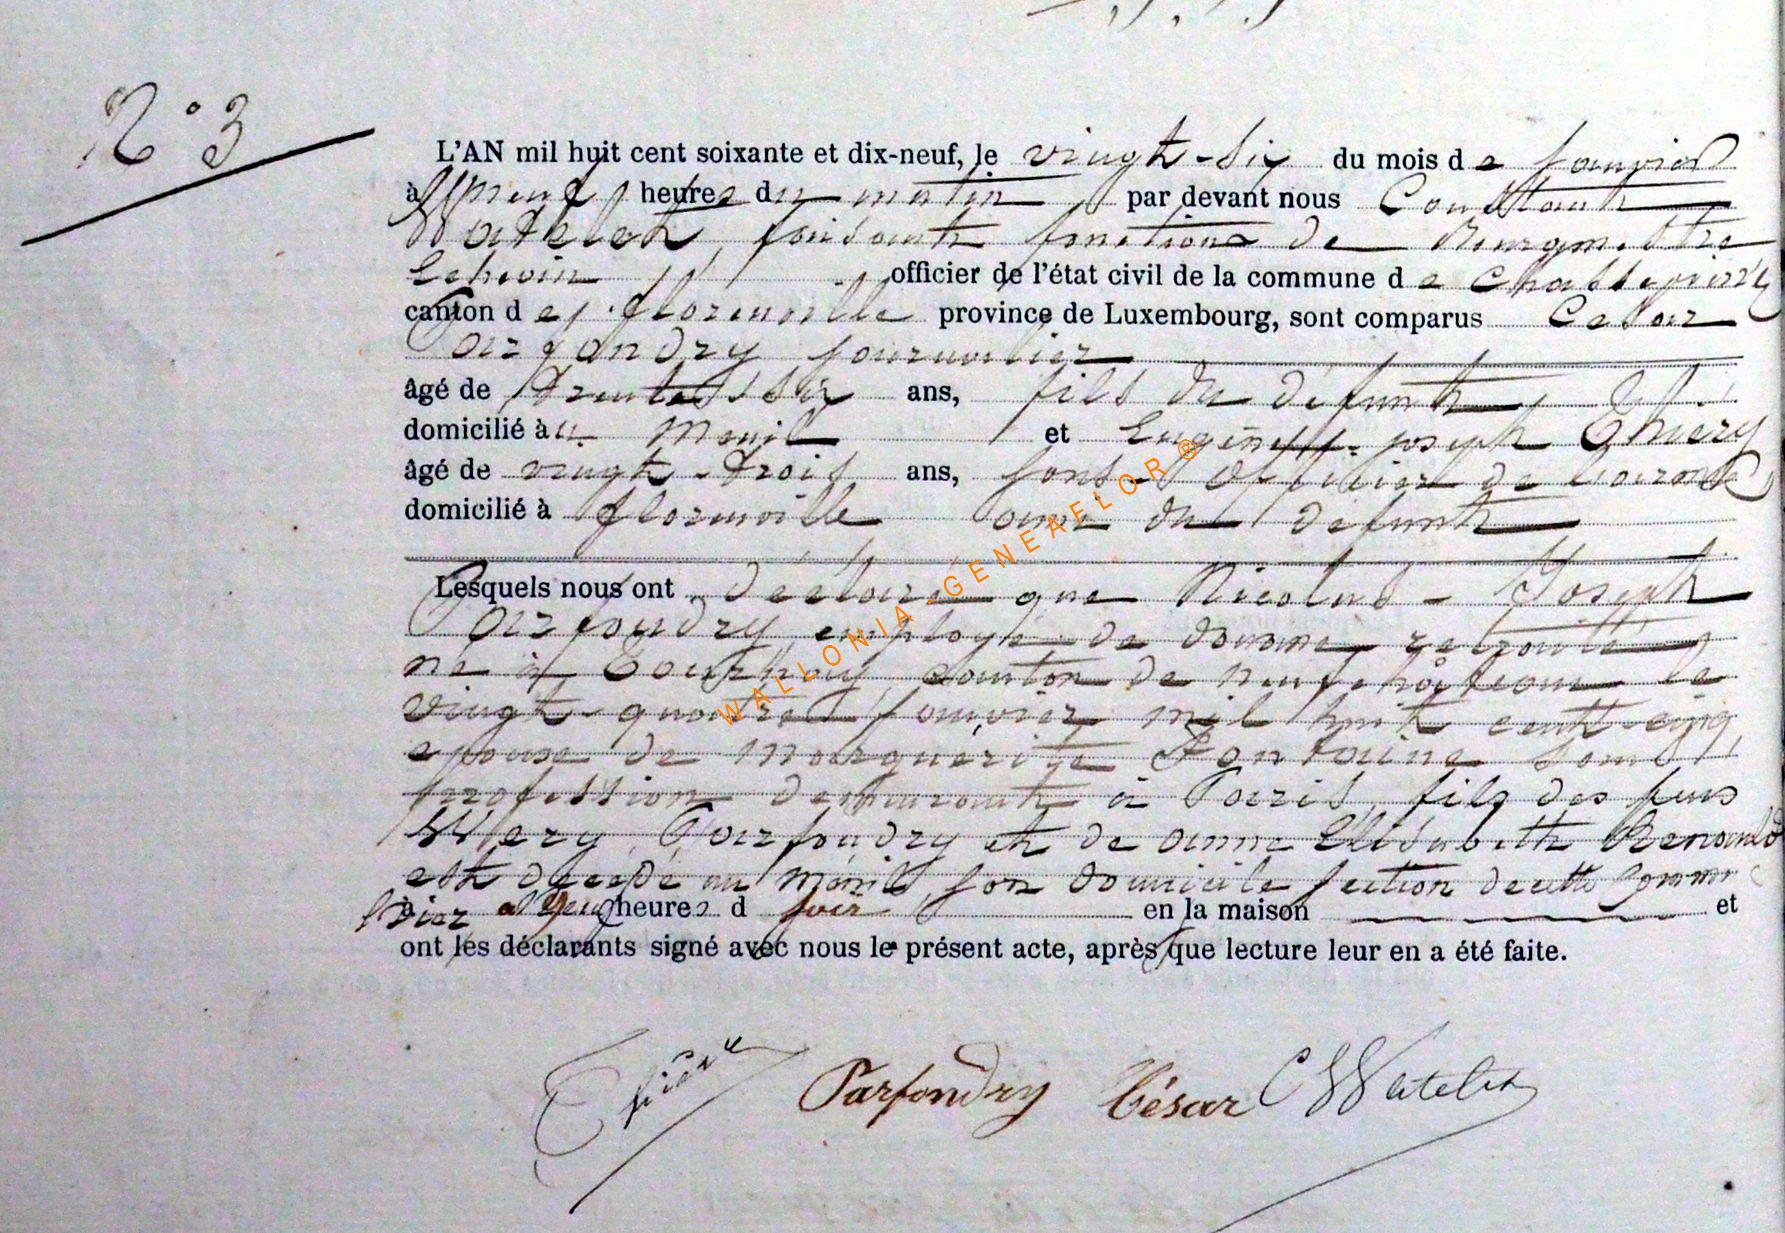 N° 3
L'AN mil huit cent soixante et dix-neuf, le vingt-six du mois de janvier
à neuf heures du matin par devant nous Constant
Watelet, faisant fonctions de Bourgmestre
Echevin officier de l'état civil de la commune de Chassepierre
canton de florenville province de Luxembourg, sont comparus Cesar
Parfondry journalier
âgé de trente six ans, fils du défunt
domicilié au Menil et Eugène joseph Thiéry
âgé de vingt-trois ans, sous-officier de
domicilié à florenville ami du defunt
Lesquels nous ont déclaré que Nicolas-Joseph
Parfondry employé de douane retraité
né à Tournay canton de neufchâteau le
vingt-quatre janvier mil huit cent-cinq
epoux de Marguérite Fontaine sans
profession demeurant à Paris, fils des feus
Wery Parfondry et de anne Elisabeth Renauld
est décédé au Ménil, son domicile section de cette Commune
hier à neuf heures d soir en la maison et
ont les déclarants signé avec nous le présent acte, après que lecture leur en a été faite.
Thiéry Parfondry César C Watelet
WALLONIA GENEAFLOR ®